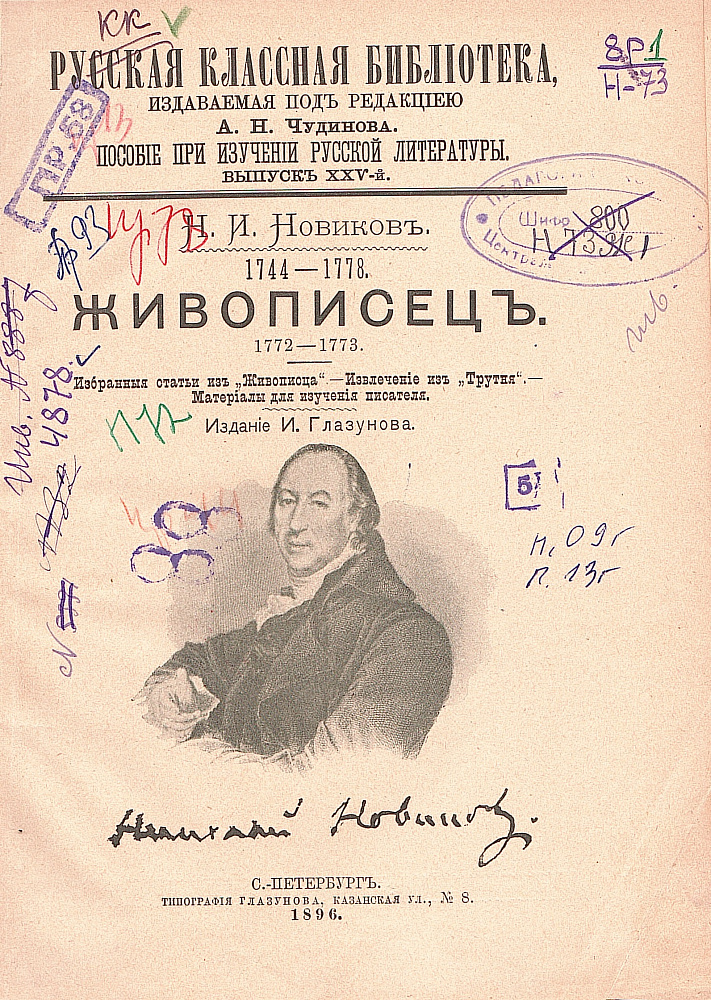 КК
РУССКАЯ КЛАССНАЯ БИБЛІОТЕКА,
8Р1
Н-73
ИЗДАВАЕМАЯ ПОДЪ РЕДАКЦІЕЮ
А. Н. Чудинова.
ПР. 58
ПОСОБІЕ ПРИ ИЗУЧЕНІИ РУССКОЙ ЛИТЕРАТУРЫ.
ВЫПУСКЪ XXV-й.
Н. И. Новиковъ.
Шифр 800
1744—1778.
ЖИВОПИСЕЦЪ.
инв.
1772—1773.
Инв. N 8887
4878
Избранныя статьи изъ „Живописца“.—Извлеченіе изъ „Трутня“.—
Матеріалы для изученія писателя.
Изданіе И. Глазунова.
5
п. 09 г
п. 13 г
Николай Новиковъ.
С.-ПЕТЕРБУРГЪ.
ТИПОГРАФІЯ ГЛАЗУНОВА, КАЗАНСКАЯ УЛ., № 8.
1896.